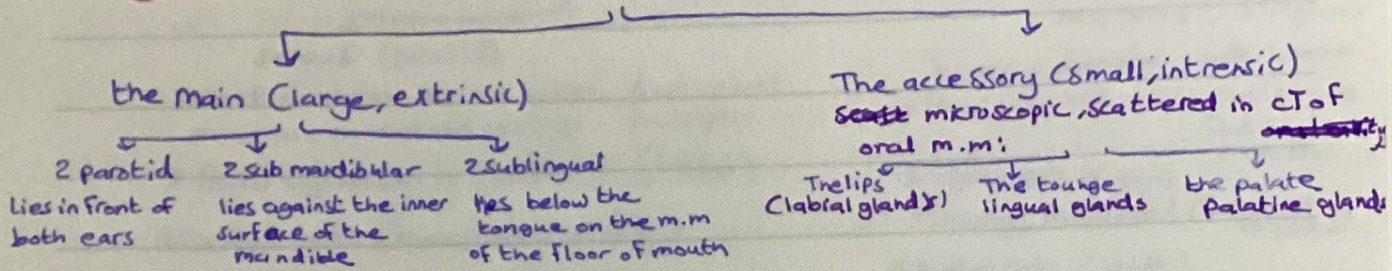 the main (large, extrinsic)
2 parotid
lies in front of
both ears
2 sub mandibular
lies against the inner
surface of the
mandible
2 sublingual
lies below the
tongue on the m.m
of the floor of mouth
The accessory (small, intrensic)
microscopic, scattered in cT of
oral m.m:
The lips
(labial glands)
The tounge
lingual glands
the palate
palatine glands